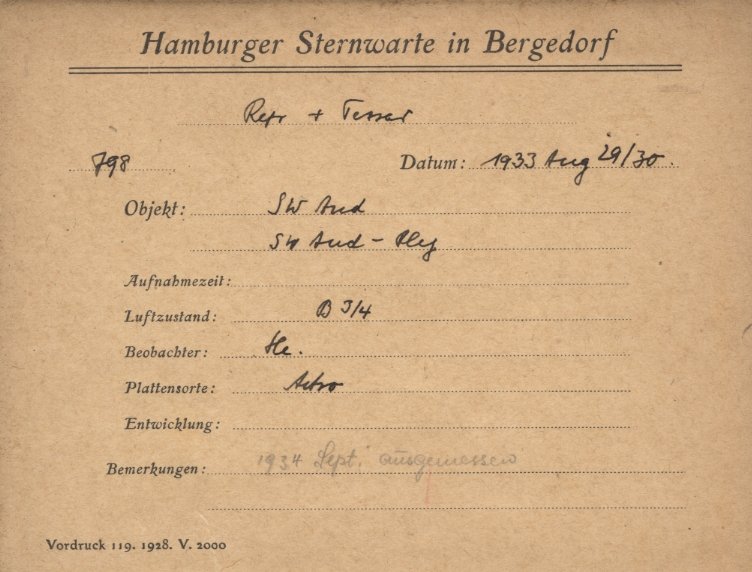 Hamburger Sternwarte in Bergedorf
Refr + Tessar
798 Datum: 1933 Aug 29/30.
Objekt: SW And
SW And -
Aufnahmezeit:
Luftzustand: B 3/4
Beobachter:
Plattensorte: Astro
Entwicklung:
Bemerkungen: 1934 Sept. ausgemessen
Vordruck 119. 1928. V. 2000